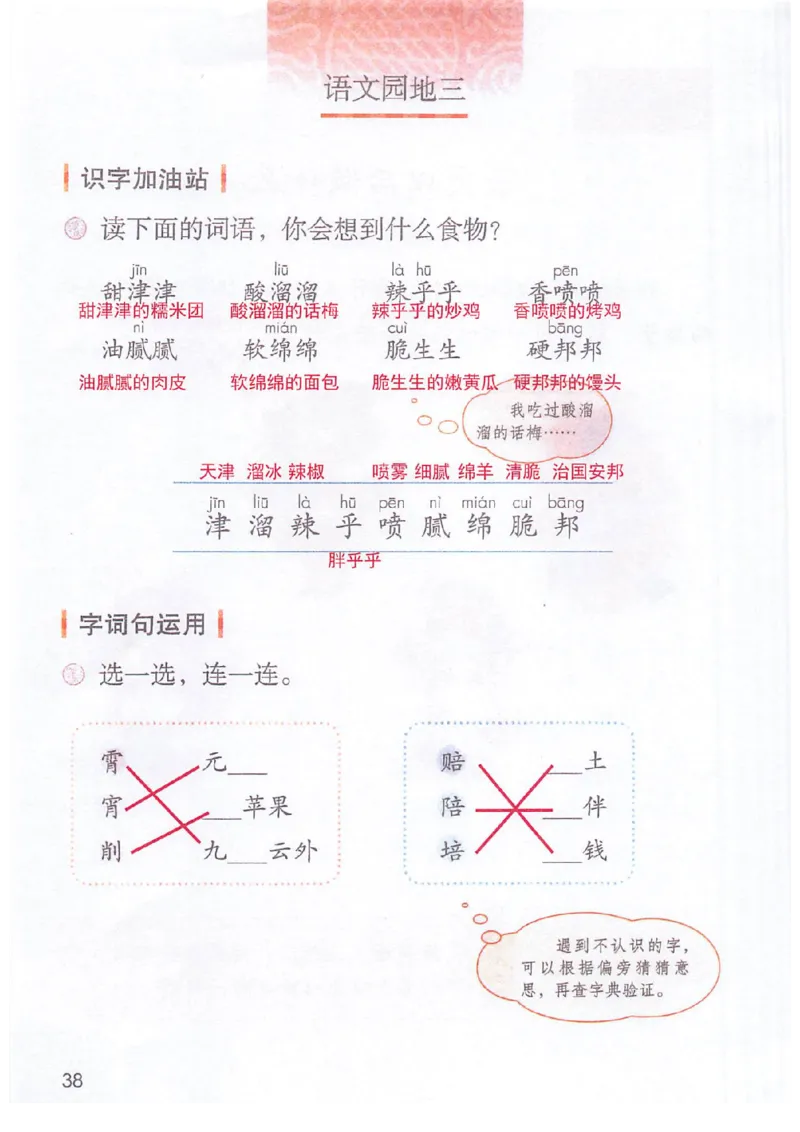 语文园地三
识字加油站
读下面的词语，你会想到什么食物？
jīn liū là hū pēn
甜津津 酸溜溜 辣乎乎 香喷喷
甜津津的糯米团 酸溜溜的话梅 辣乎乎的炒鸡 香喷喷的烤鸡
nì mián cuì bāng
油腻腻 软绵绵 脆生生 硬邦邦
油腻腻的肉皮 软绵绵的面包 脆生生的嫩黄瓜 硬邦邦的馒头
我吃过酸溜
溜的话梅……
天津 溜冰 辣椒 喷雾 细腻 绵羊 清脆 治国安邦
jīn liū là hū pēn nì mián cuì bāng
津 溜 辣 乎 喷 腻 绵 脆 邦
胖乎乎
字词句运用
选一选，连一连。
霄 元___ 赔 ___土
宵 ___苹果 陪 ___伴
削 九___云外 培 ___钱
遇到不认识的字，
可以根据偏旁猜猜意
思，再查字典验证。
38